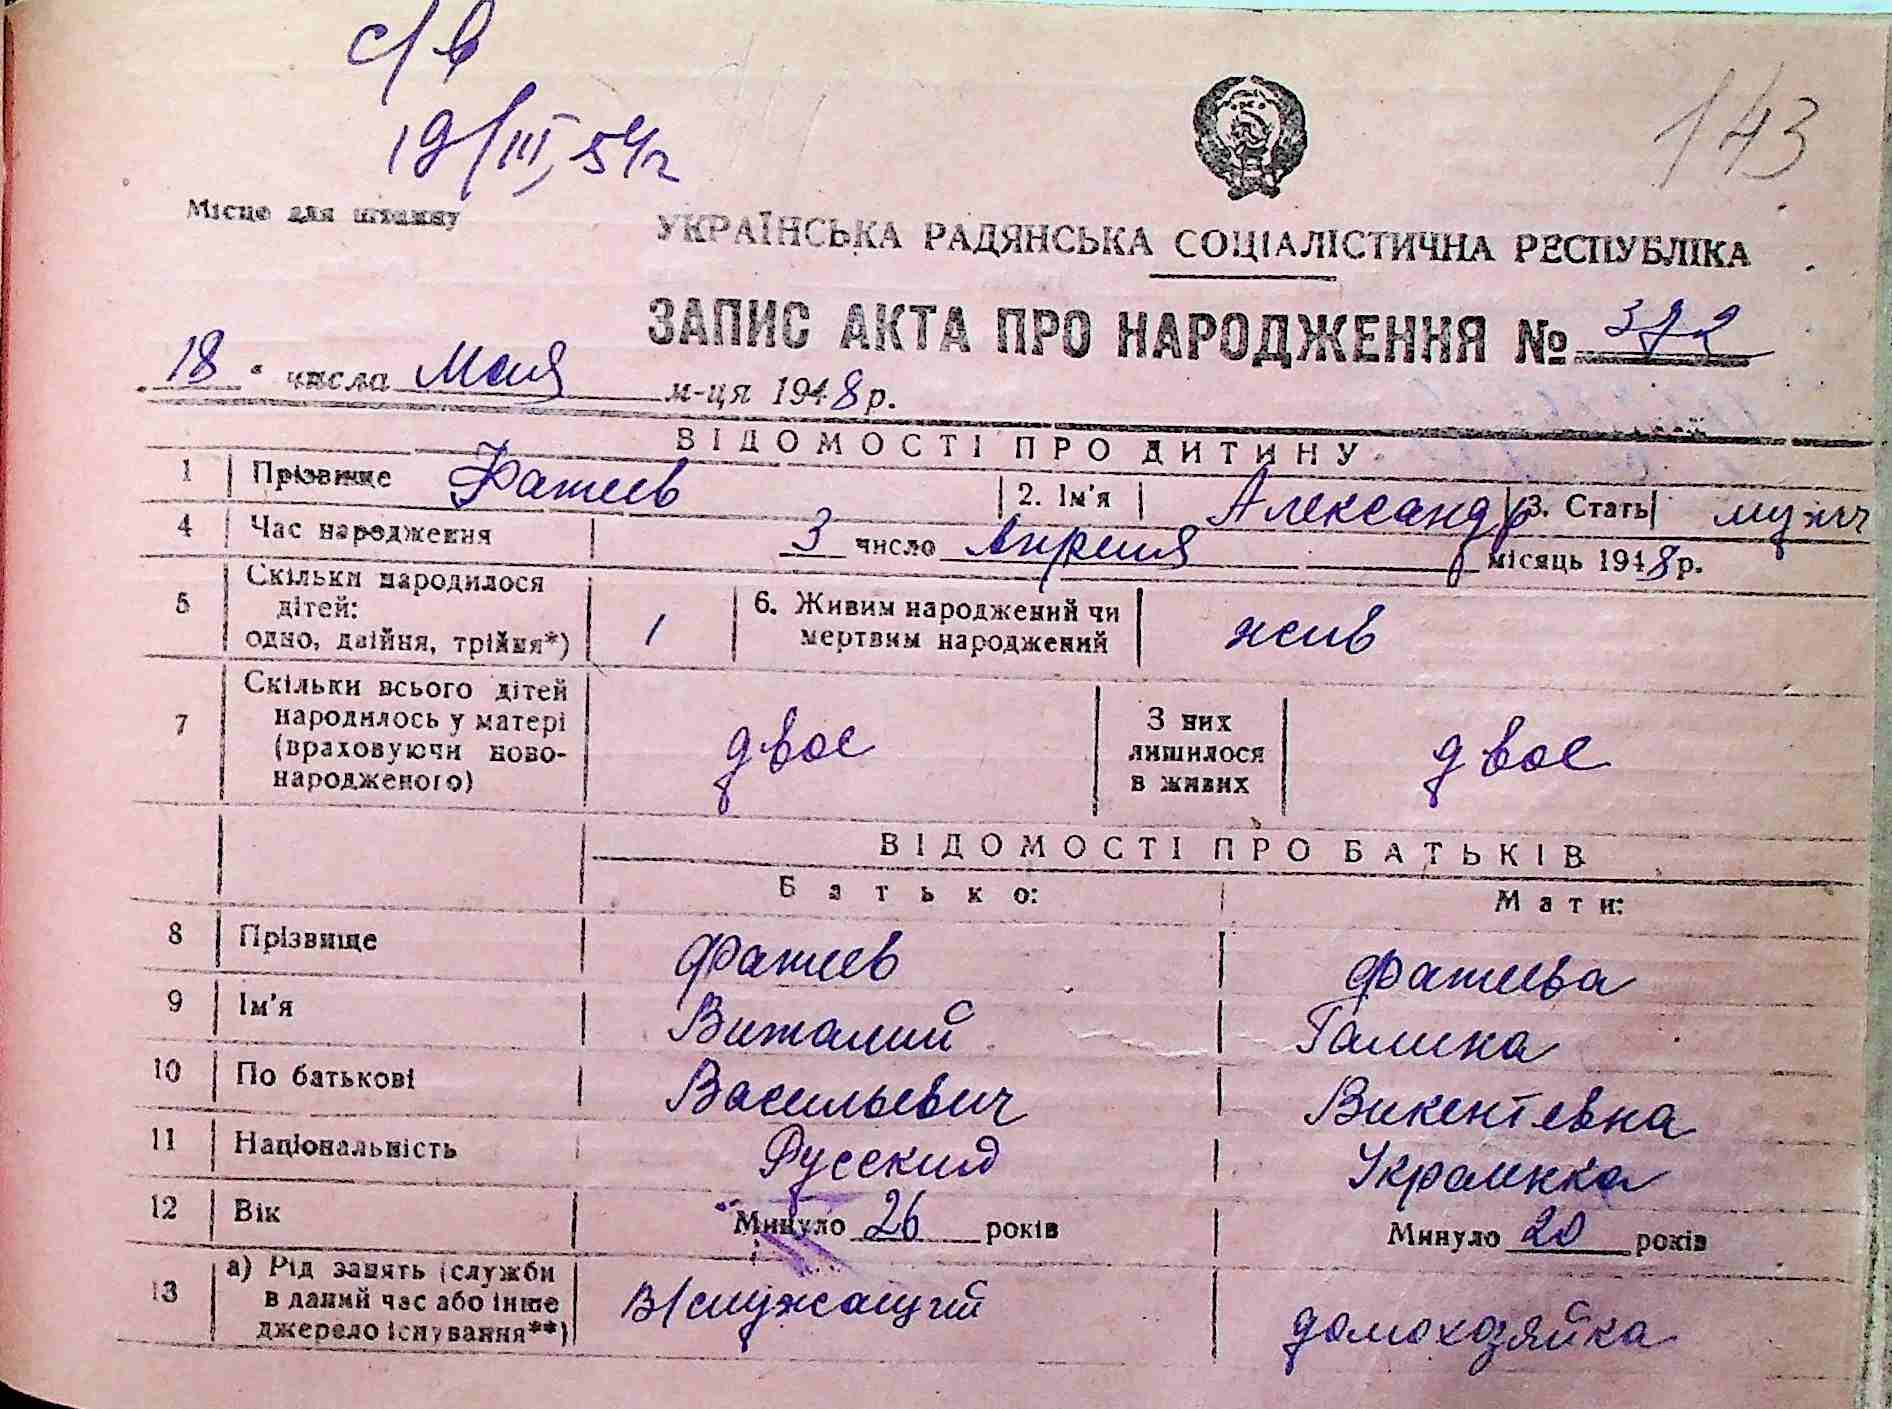 с/в
19/III, 54г
143
Місце для штампу
УКРАЇНСЬКА РАДЯНСЬКА СОЦІАЛІСТИЧНА РЕСПУБЛІКА
ЗАПИС АКТА ПРО НАРОДЖЕННЯ № 372
18 " числа Мая м-ця 1948 р.
ВІДОМОСТІ ПРО ДИТИНУ
1 Прізвище Фатеев 2. Ім'я Александр 3. Стать мужч
4 Час народження 3 число Апреля місяць 1948 р.
5 Скільки народилося
дітей:
одно, двійня, трійня*) 1 6. Живим народжений чи
мертвим народжений жив
7 Скільки всього дітей
народилось у матері
(враховуючи ново-
народженого) двое З них
лишилося
в живих двое
ВІДОМОСТІ ПРО БАТЬКІВ
Батько: Мати:
8 Прізвище Фатеев Фатеева
9 Ім'я Виталий Галина
10 По батькові Васильевич Викентевна
11 Національність Русский Украинка
12 Вік Минуло 26 років Минуло 20 років
13 а) Рід занять (служби
в даний час або інше
джерело існування**) в/служащий домохозяйка